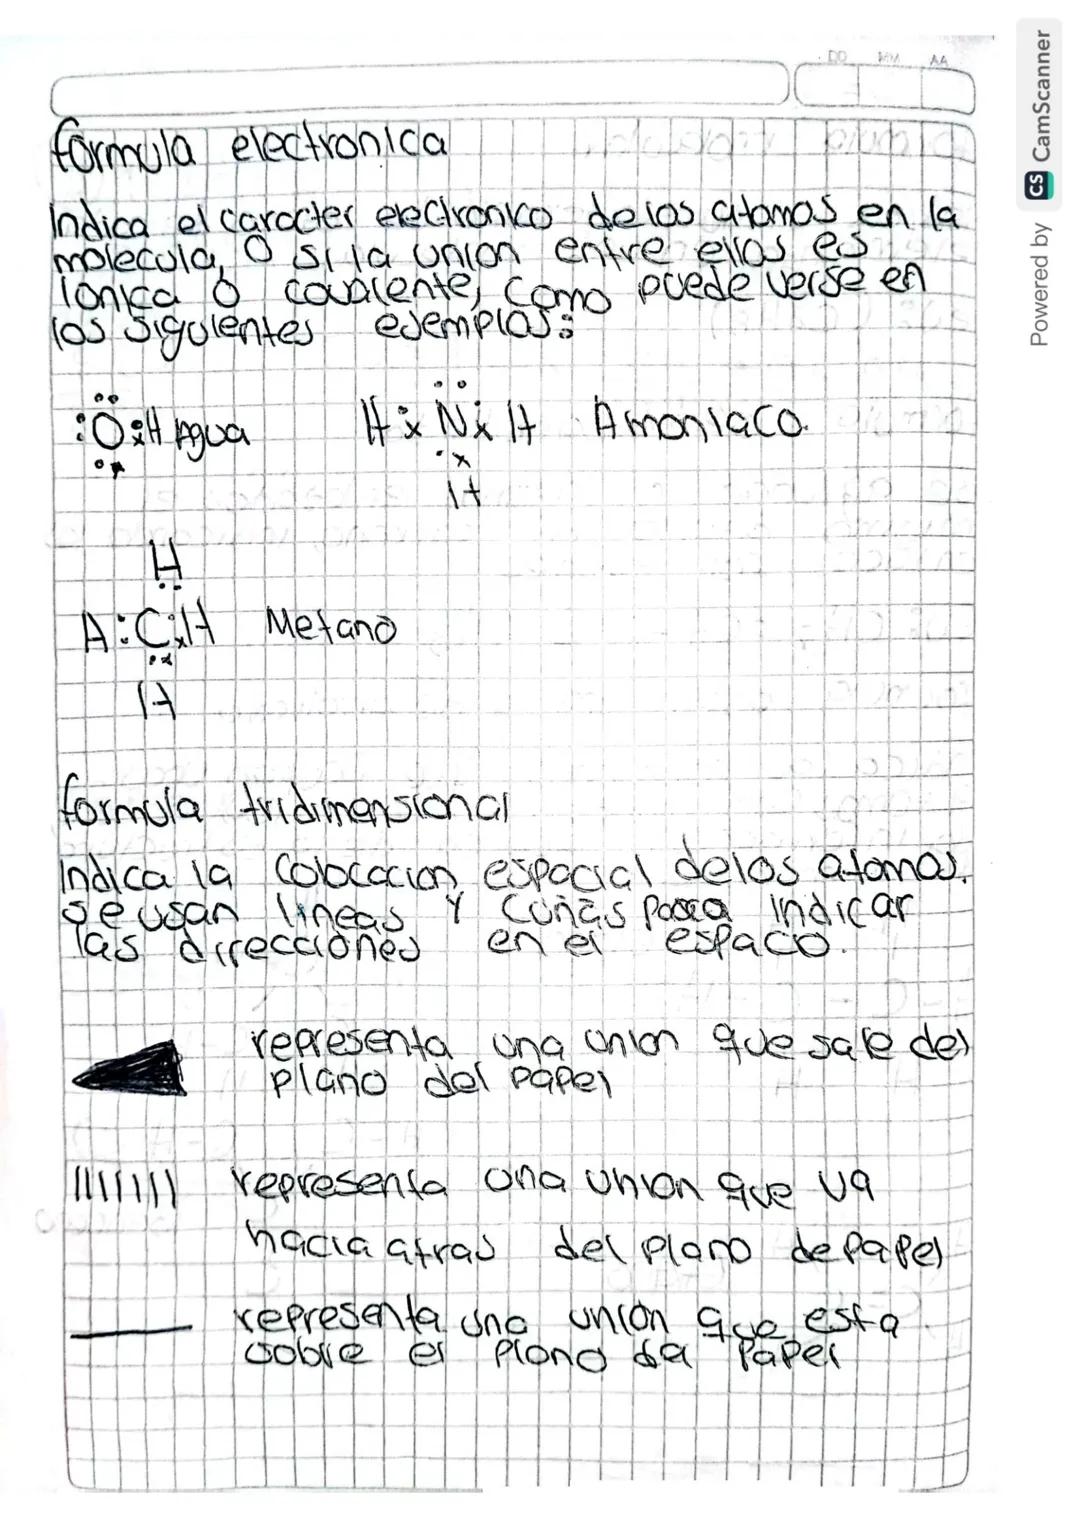 DD MM AA
formula electronica
Indica el caracter electronico de los atomos en la
molecula, O si la union entre ellos es
Ionica o covalente, como puede verse en
los siguientes ejemplos:
:O:H Agua H x N x H Amoniaco.
H
H
A:C:H Metano
H
formula tridimensional
Indica la colocacion espacial delos atomos.
se usan lineas y cuñas para indicar
las direcciones en el espacio.
representa una union que sale del
plano del papel
representa una union que va
hacia atras del plano de papel
representa una unión que esta
sobre el plano del papel
Powered by CS CamScanner